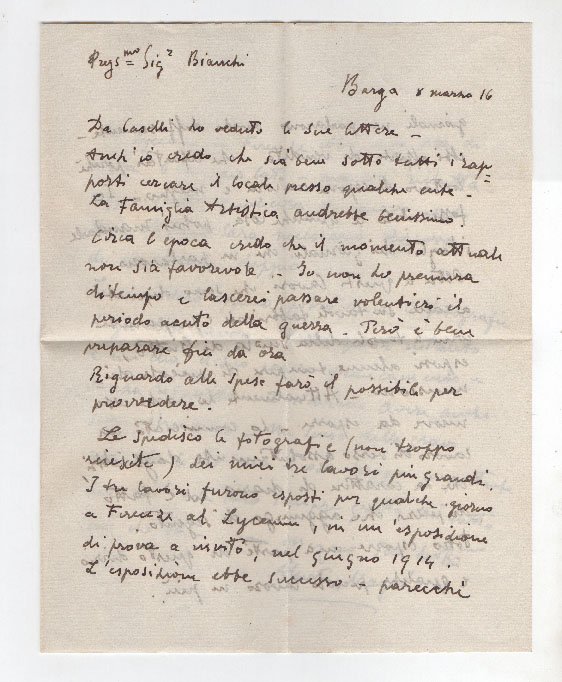 Pregs^mo = Sig^r Bianchi
Barga 8 marzo 16
Da Caselli ho veduto le sue lettere -
Anch'io credo che sia bene sotto tutti i rap=
porti cercare il locale presso qualche ente -
La Famiglia Artistica andrebbe benissimo.
Circa l'epoca credo che il momento attuale
non sia favorevole - Io non ho premura
di tempo e lascerei passare volentieri il
periodo acuto della guerra. Però è bene
preparare fin da ora
Riguardo alle spese farò il possibile per
provvedere.
Le spedisco le fotografie (non troppo
riescite) dei miei tre lavori più grandi
I tre lavori furono esposti per qualche giorno
a Firenze al Lyceum, in un'esposizione
di prova a invito, nel giugno 1914.
L'esposizione ebbe successo - parecchi